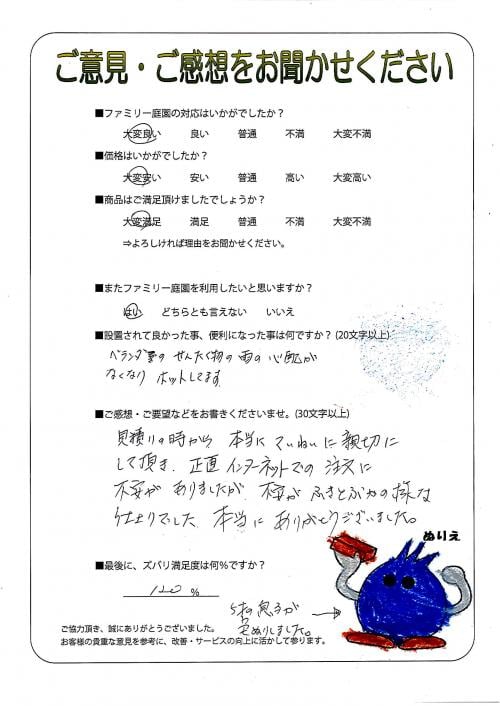 ご意見・ご感想をお聞かせください
■ファミリー庭園の対応はいかがでしたか？
大変良い 良い 普通 不満 大変不満
■価格はいかがでしたか？
大変安い 安い 普通 高い 大変高い
■商品はご満足頂けましたでしょうか？
大変満足 満足 普通 不満 大変不満
⇒よろしければ理由をお聞かせください。
■またファミリー庭園を利用したいと思いますか？
はい どちらとも言えない いいえ
■設置されて良かった事、便利になった事は何ですか？(20文字以上)
ベランダ の せんたく物の 雨の 心配が
なくなり ホットしてます
■ご感想・ご要望などをお書きくださいませ。(30文字以上)
見積りの時から 本当に ていねいに 親切に
して頂き、正直 インターネットでの 注文に
不安が ありましたが、不安が ふきとぶかの様な
仕上りでした。本当に ありがとうございました。
ぬりえ
■最後に、ズバリ満足度は何%ですか？
120 %
5才の息子が
色ぬりしました。
ご協力頂き、誠にありがとうございました。
お客様の貴重な意見を参考に、改善・サービスの向上に活かして参ります。